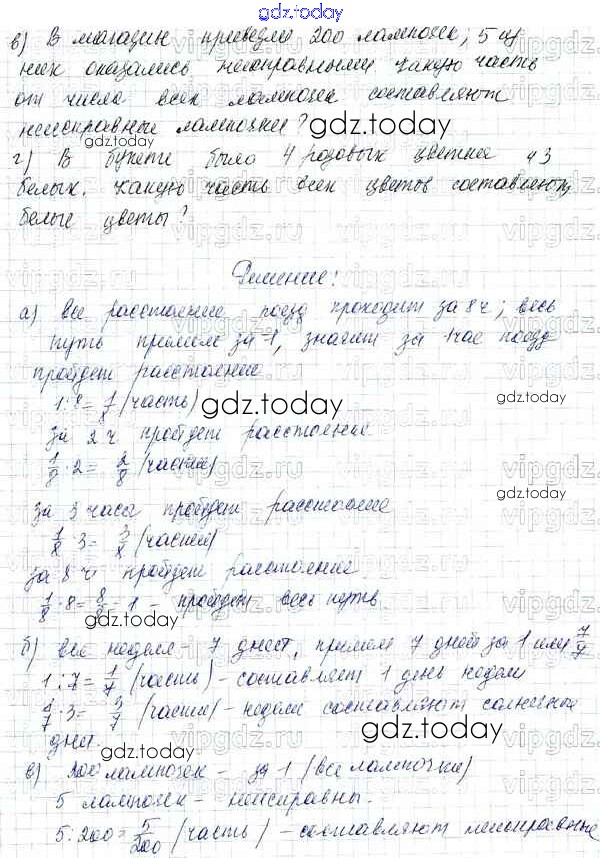 gdz.today
в) В магазин привезли 200 лампочек, 5 из
них оказались неисправными. Какую часть
от числа всех лампочек составляют
неисправные лампочки?
gdz.today
г) В букете было 4 розовых цветка и 3
белых. Какую часть всех цветов составляют
белые цветы?
gdz.today
Решение:
а) все расстояние поезд проходит за 8 ч; весь
путь примем за 1, значит за 1 час поезд
пройдет расстояние
1:8= (часть)
gdz.today
за 2 ч пройдет расстояние
· 2 = 2/8 (части)
gdz.today
за 3 часа пройдет расстояние
1/8 · 3 = 3/8 (части)
за 8 ч пройдет расстояние
1/8 · 8 = 8/8 = 1 - пройдет весь путь.
gdz.today
б) вся неделя - 7 дней, примем 7 дней за 1 или 7/7
1:7= 1/7 (часть) - составляет 1 день недели
· 3 = 3/7 (части) - недели составляют солнечные
дней.
gdz.today
gdz.today
в) 200 лампочек - за 1 (все лампочки)
5 лампочек - неисправны.
5:200 = 5/200 (часть) - составляют неисправные
gdz.today